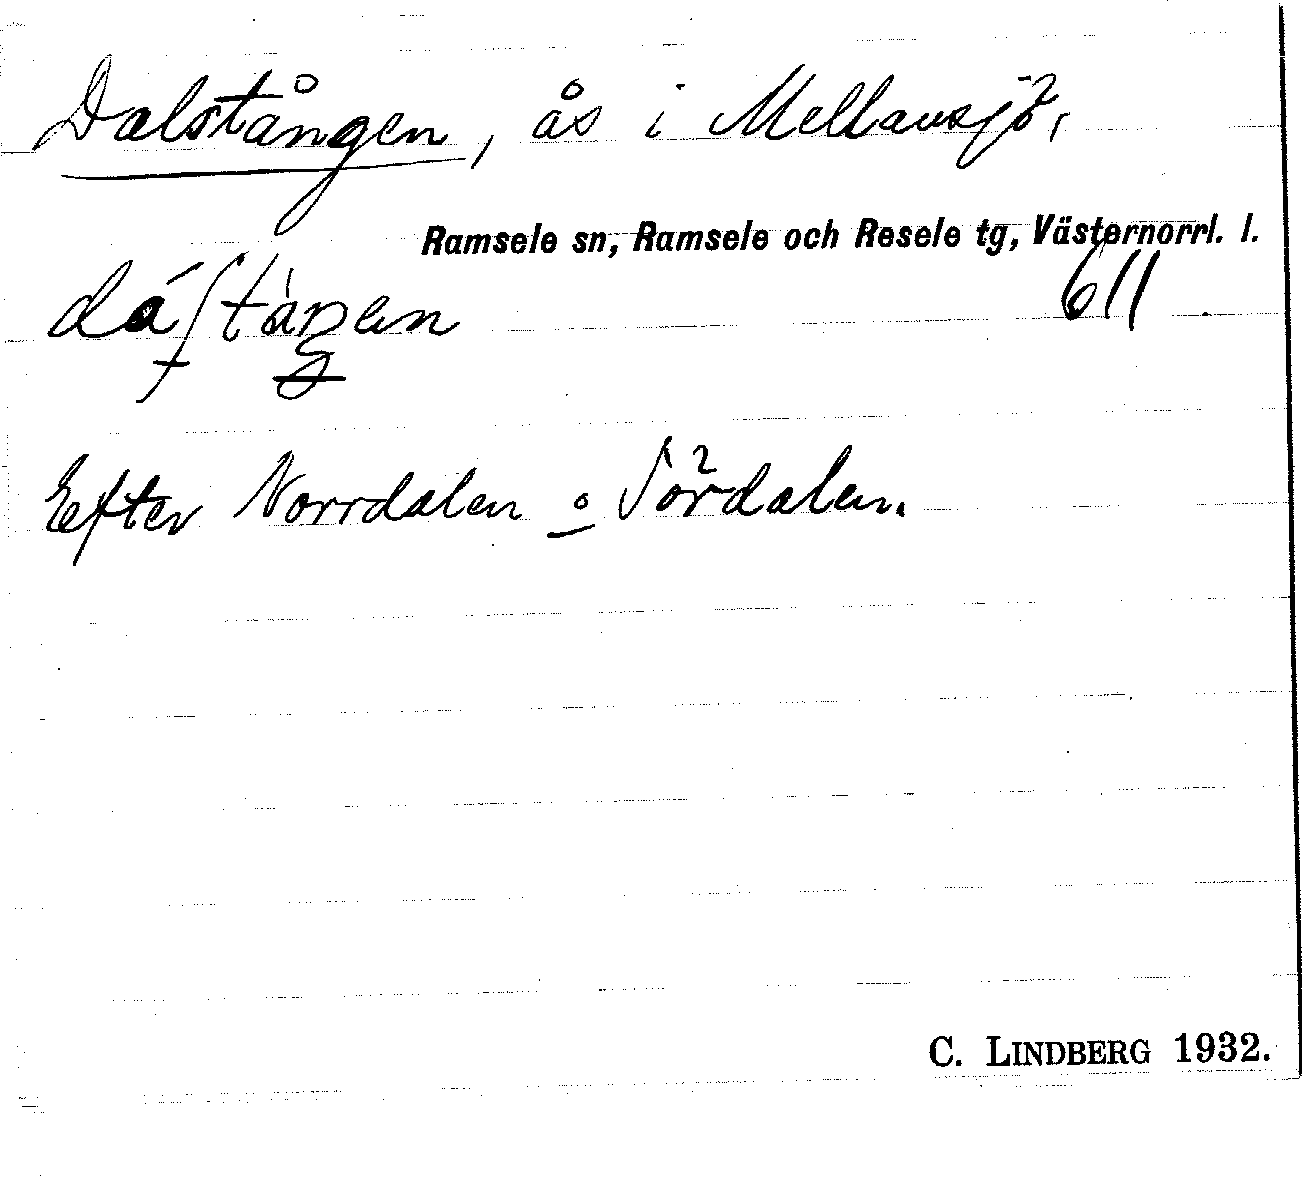 Dalstången, ås i Mellansjö,
Ramsele sn, Ramsele och Resele tg, Västernorrl. l.
611
Efter Norrdalen o Sördalen.
C. LINDBERG 1932.